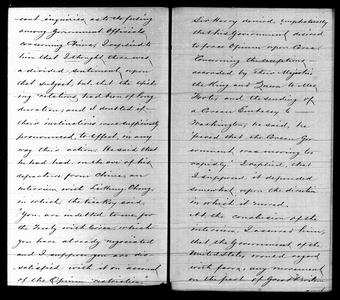 cent inquiries as to the feeling
among Government Officials
concerning China; I replied to
him that I thought there was
a divided sentiment upon
that subject, but that the
my relations had been of long
duration, and I doubted if
their instincts were sufficiently
pronounced, to effect, in any
way their action. He said that
he had had, on the eve of his
departure from China, an
interview with Li Hung Chang,
in which the Viceroy said,
"You are indebted to me for
the Treaty with Corea which
you have already negotiated
and I suppose you are dis-
satisfied with it on account
of the Opium restriction.
Sir Harry denied, emphatically
that his Government desired
to force Opium upon Corea.
Concerning the receptions
accorded by their Majesties
the King and Queen to Mrs
Foote, and the sending of
a Corean Embassy to
Washington, he said, he
feared that the Corean Gov-
ernment, was moving too
rapidly. I replied, that
I supposed it depended
somewhat upon the direction
in which it moved.
At the conclusion of the
interview, I assured him,
that the Government of the
United States would regard
with favor, any movement
on the part of Great Britain